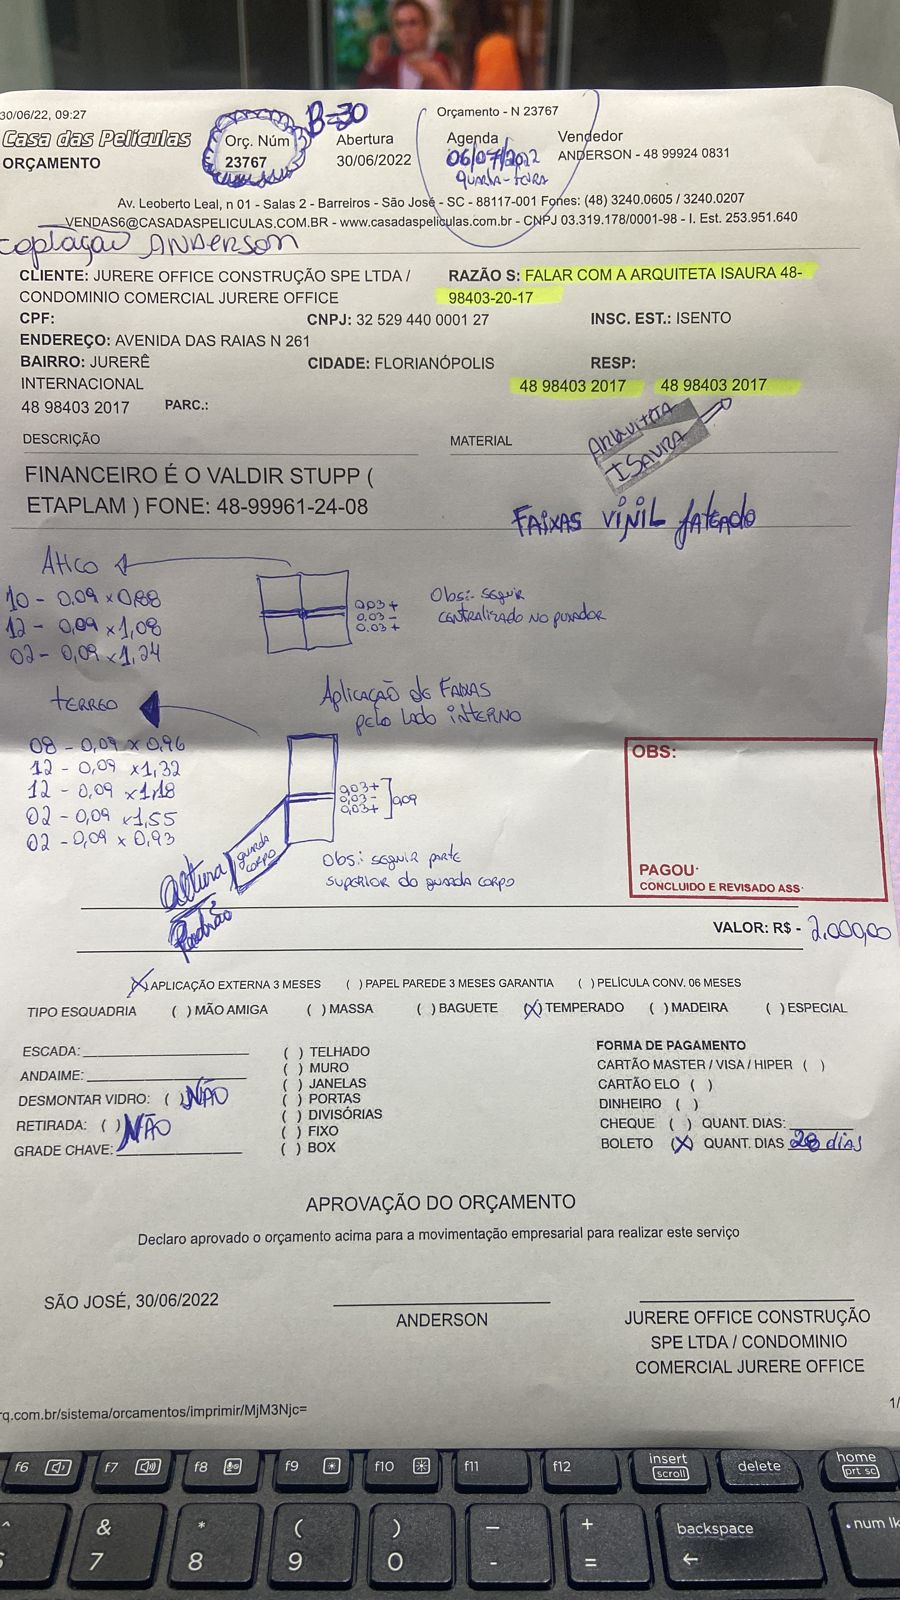 30/06/22, 09:27
Orçamento - N 23767
B=30
Casa das Películas
ORÇAMENTO
Orç. Núm
23767
Abertura
30/06/2022
Agenda
06/07/2022
QUARTA-FEIRA
Vendedor
ANDERSON - 48 99924 0831
Av. Leoberto Leal, n 01 - Salas 2 - Barreiros - São José - SC - 88117-001 Fones: (48) 3240.0605 / 3240.0207
VENDAS6@CASADASPELICULAS.COM.BR - www.casadaspeliculas.com.br - CNPJ 03.319.178/0001-98 - I. Est. 253.951.640
coptaçao ANDERSON
CLIENTE: JURERE OFFICE CONSTRUÇÃO SPE LTDA /
CONDOMINIO COMERCIAL JURERE OFFICE
RAZÃO S: FALAR COM A ARQUITETA ISAURA 48-
98403-20-17
CPF:
CNPJ: 32 529 440 0001 27
INSC. EST.: ISENTO
ENDEREÇO: AVENIDA DAS RAIAS N 261
BAIRRO: JURERÊ
INTERNACIONAL
CIDADE: FLORIANÓPOLIS
RESP:
48 98403 2017 48 98403 2017
48 98403 2017 PARC.:
ARQUITETA
ISAURA
DESCRIÇÃO
MATERIAL
FINANCEIRO É O VALDIR STUPP (
ETAPLAM ) FONE: 48-99961-24-08
FAIXAS VINIL Jateado
Atico
10 - 0,09 x 0,88
12 - 0,09 x 1,08
02 - 0,09 x 1,24
0,03 +
0,03 -
0,03 +
Obs:. seguir
centralizado no puxador
terreo
Aplicação de FAIXAS
pelo lado interno
08 - 0,09 x 0,96
12 - 0,09 x 1,32
12 - 0,09 x 1,18
02 - 0,09 x 1,55
02 - 0,09 x 0,93
0,03 +
0,03 -
0,03 +
0,09
guarda
corpo
Altura
Padrão
Obs: seguir parte
superior do guarda corpo
OBS:
PAGOU·
CONCLUIDO E REVISADO ASS·
VALOR: R$ - 2.000,00
(X) APLICAÇÃO EXTERNA 3 MESES ( ) PAPEL PAREDE 3 MESES GARANTIA ( ) PELÍCULA CONV. 06 MESES
TIPO ESQUADRIA ( ) MÃO AMIGA ( ) MASSA ( ) BAGUETE (X) TEMPERADO ( ) MADEIRA ( ) ESPECIAL
ESCADA:
ANDAIME:
DESMONTAR VIDRO: ( ) NÃO
RETIRADA: ( ) NÃO
GRADE CHAVE:
( ) TELHADO
( ) MURO
( ) JANELAS
( ) PORTAS
( ) DIVISÓRIAS
( ) FIXO
( ) BOX
FORMA DE PAGAMENTO
CARTÃO MASTER / VISA / HIPER ( )
CARTÃO ELO ( )
DINHEIRO ( )
CHEQUE ( ) QUANT. DIAS:
BOLETO (X) QUANT. DIAS 28 dias
APROVAÇÃO DO ORÇAMENTO
Declaro aprovado o orçamento acima para a movimentação empresarial para realizar este serviço
SÃO JOSÉ, 30/06/2022
ANDERSON
JURERE OFFICE CONSTRUÇÃO
SPE LTDA / CONDOMINIO
COMERCIAL JURERE OFFICE
rq.com.br/sistema/orcamentos/imprimir/MjM3Njc=
1/
f6 f7 f8 f9 f10 f11 f12 insert scroll delete home prt sc
^ 6 & 7 * 8 ( 9 ) 0 — - + = backspace num lk